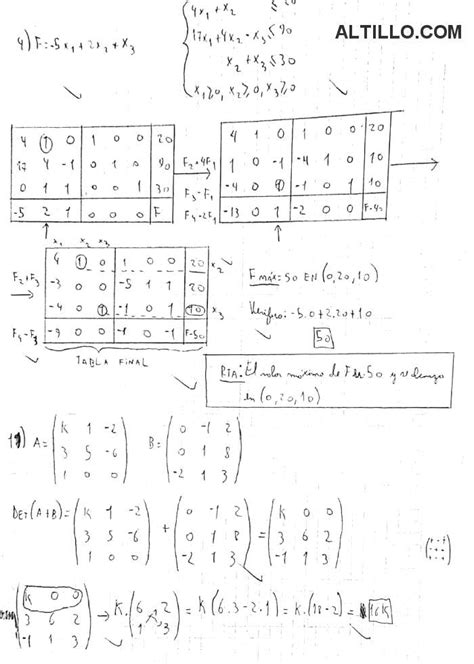 ALTILLO.COM
4x₁ + x₂ ≤ 20
4) F = -5x₁ + 2x₂ + x₃
17x₁ + 4x₂ - x₃ ≤ 90
x₂ + x₃ ≤ 30
x₁ ≥ 0, x₂ ≥ 0, x₃ ≥ 0
4 1 0 1 0 0 20
17 4 -1 0 1 0 90
0 1 1 0 0 1 30
-5 2 1 0 0 0 F
F₂ - 4F₁
F₃ - F₁
F₄ - 2F₁
4 1 0 1 0 0 20
1 0 -1 -4 1 0 10
-4 0 1 -1 0 1 10
-13 0 1 -2 0 0 F-40
x₁ x₂ x₃
F₂ + F₃
F₄ - F₃
4 1 0 1 0 0 20 x₂
-3 0 0 -5 1 1 20
-4 0 1 -1 0 1 10 x₃
-9 0 0 -1 0 -1 F-50
TABLA FINAL
F máx = 50 EN (0,20,10)
Verifico: -5.0+2.20+10
50
RTA: El valor máximo de F es 50 y se alcanza
en (0,20,10)
A = K 1 -2 B = 0 -1 2
3 5 -6 0 1 8
1 0 0 -2 1 3
DET(A+B) = K 1 -2 + 0 -1 2 = K 0 0
3 5 -6 0 1 8 3 6 2
1 0 0 -2 1 3 -1 1 3
K 0 0
3 6 2 → K. 6 2 = K(6.3-2.1) = K.(18-2) = 16K
-1 1 3 1 3